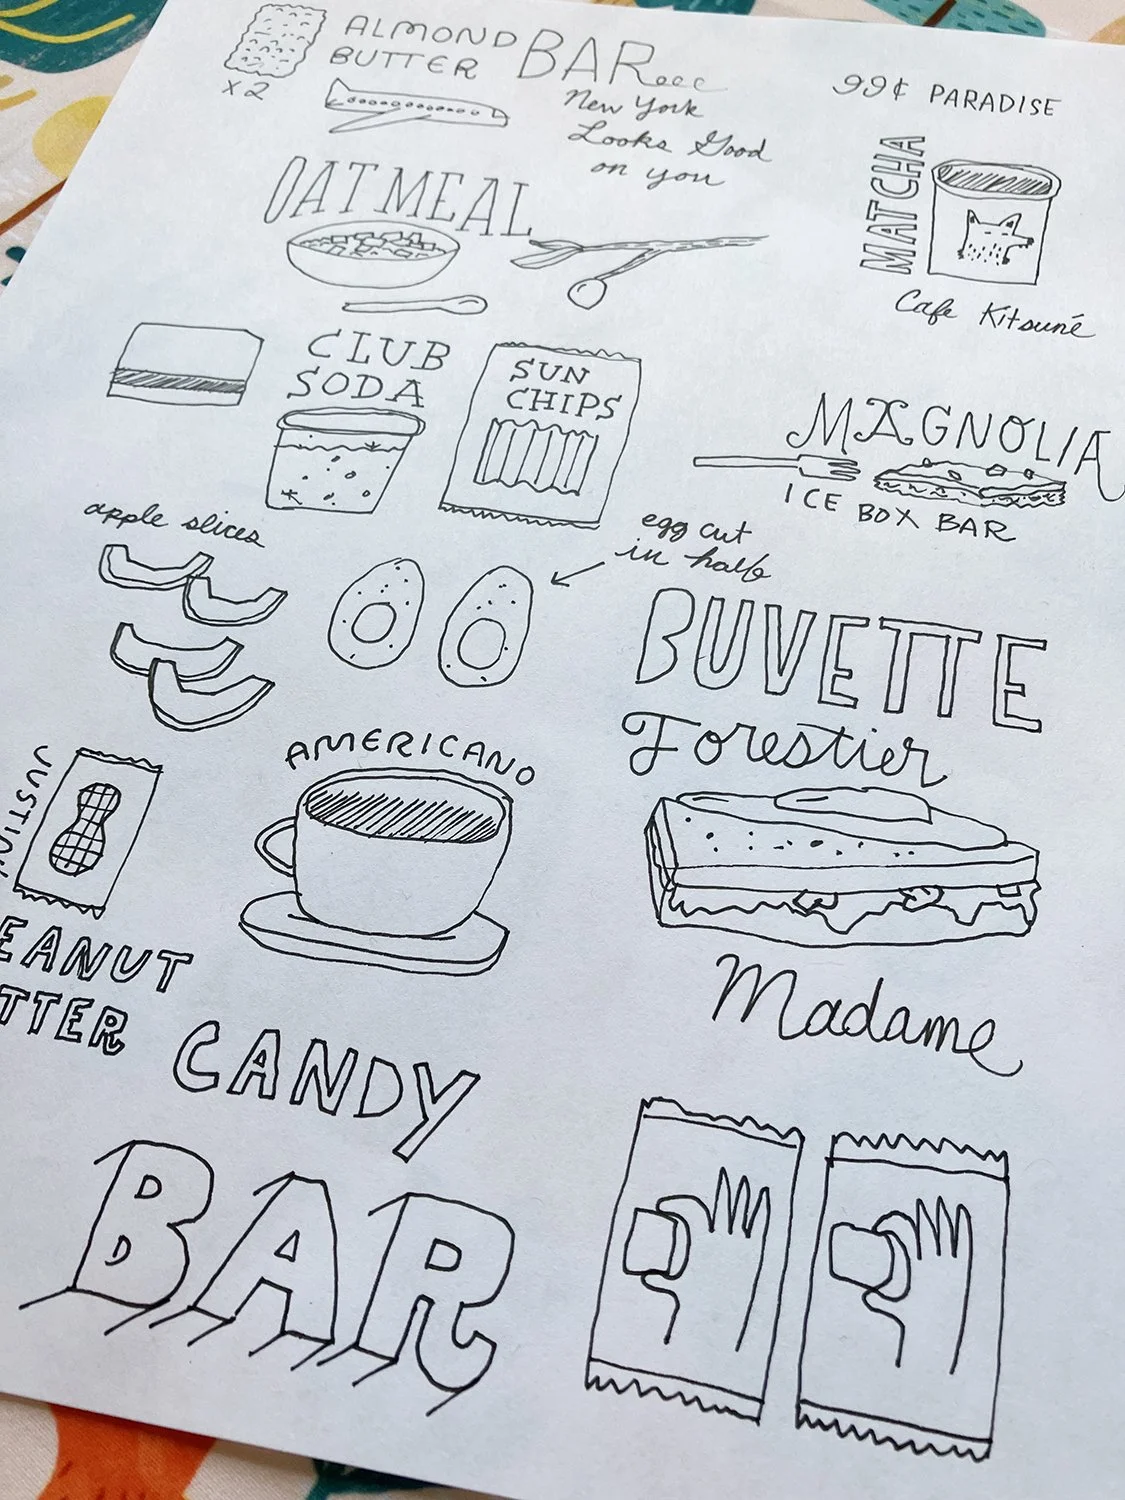 ALMOND
BUTTER
BAR
x2
New York
Looks Good
on you
99¢ PARADISE
OATMEAL
MATCHA
Cafe Kitsuné
CLUB
SODA
SUN
CHIPS
MAGNOLIA
ICE BOX BAR
apple slices
egg cut
in half
BUVETTE
Forestier
AMERICANO
JUSTIN
EANUT
TTER
Madame
CANDY
BAR